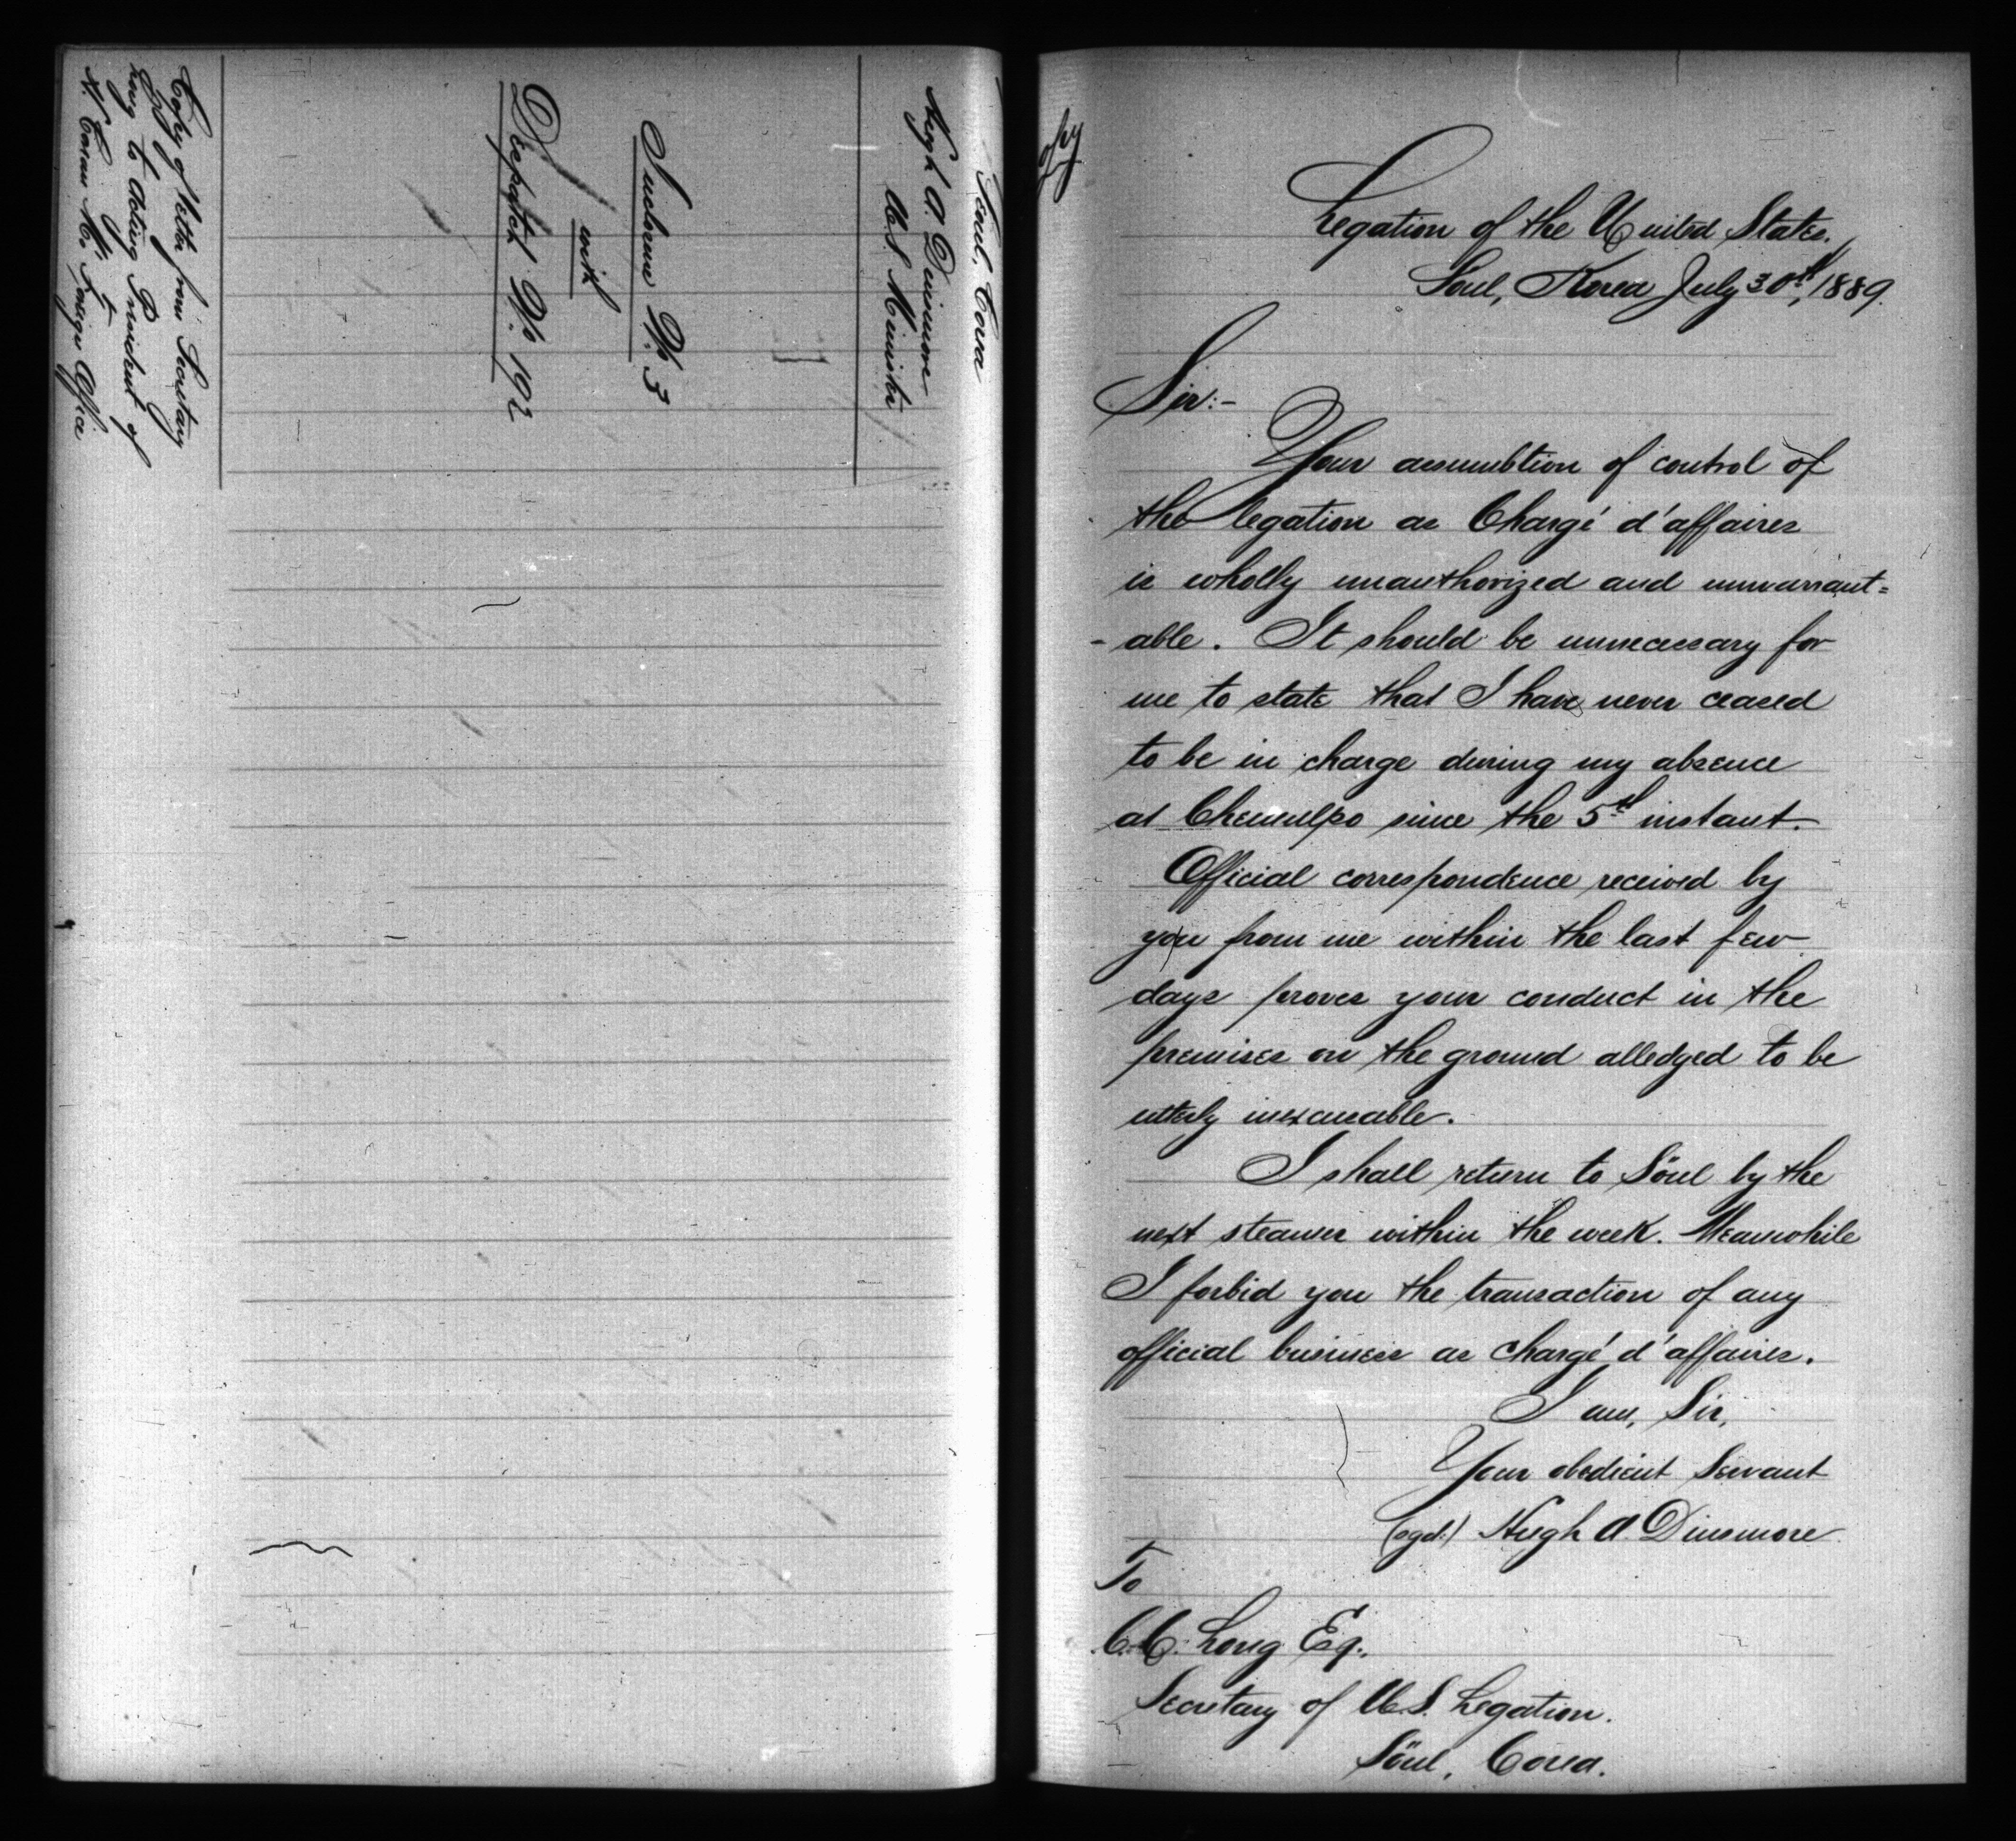 Seoul, Corea
Hugh A. Dinsmore
U.S. Minister
Inclosure No. 3
with
Dispatch No. 192
Copy of letter from Secretary
Long to Acting President of
H. Corean M's Foreign Office
opy
Legation of the United States.
Soul, Korea July 30th, 1889.
Sir:-
Your assumbtion of control of
the legation as Chargé d'affaires
is wholly unauthorized and unwarrant=
-able. It should be unnecessary for
me to state that I have never ceased
to be in charge during my absence
at Chemulpo since the 5th instant.
Official correspondence received by
you from me within the last few
days proves your conduct in the
premises on the ground alledged to be
utterly inexcusable.
I shall return to Söul by the
next steamer within the week. Meanwhile
I forbid you the transaction of any
official business as chargé d'affaires.
I am, Sir,
Your obedient Servant
(sgd:) Hugh A. Dinsmore
To
C.C. Long Eq:,
Secretary of U.S. Legation.
Söul, Corea.